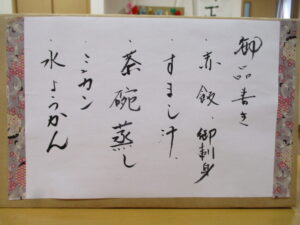 御品書き
・赤飯・御刺身
・すまし汁
・茶碗蒸し
ミカン
・水ようかん